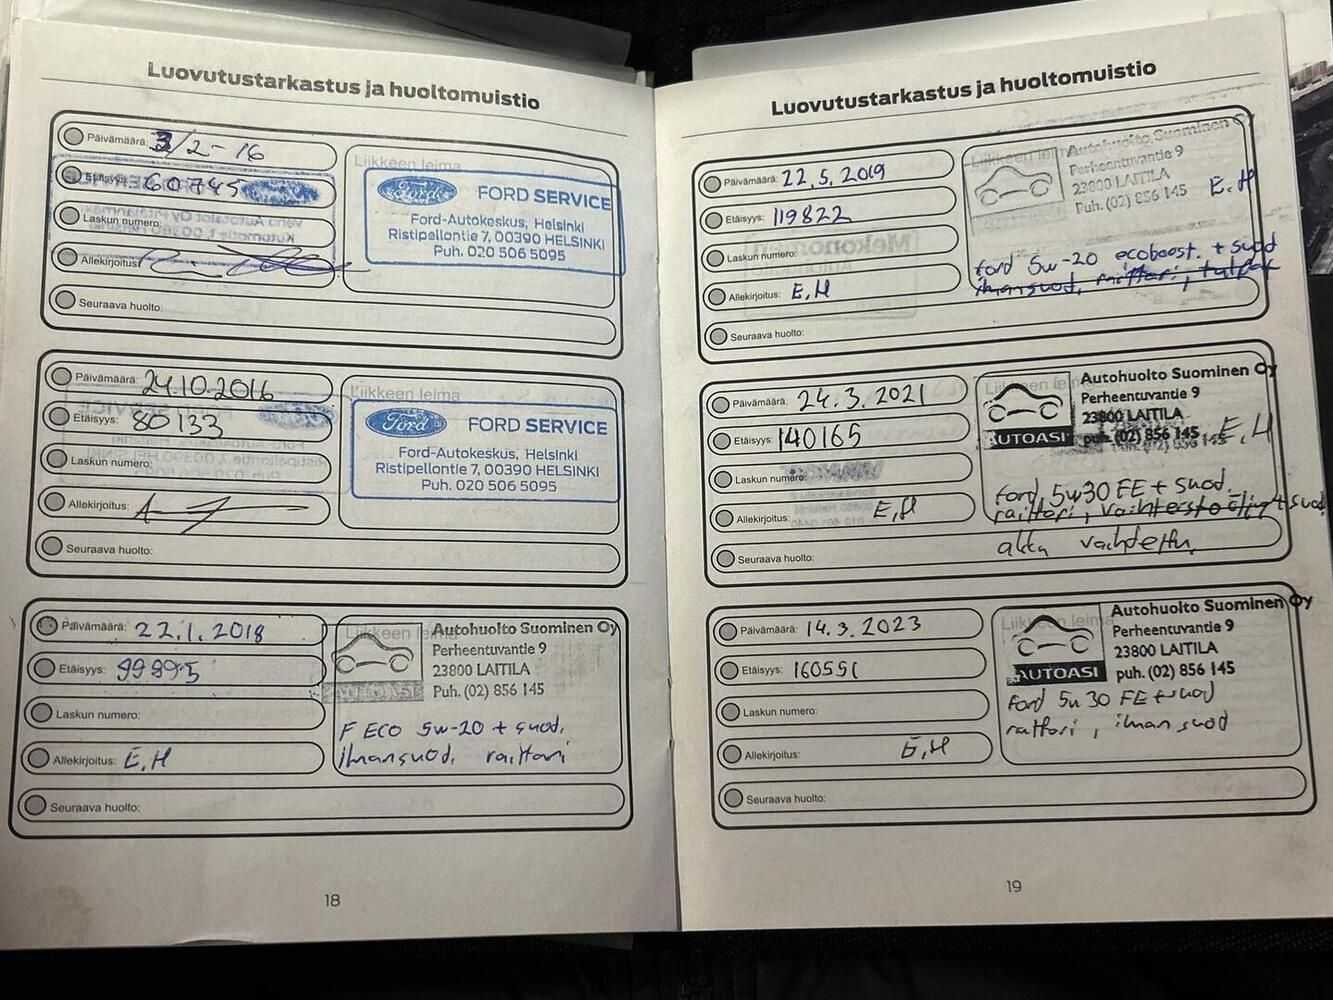 Luovutustarkastus ja huoltomuistio
Päivämäärä: 3/2-16
Etäisyys: 60745
Laskun numero:
Allekirjoitus:
Seuraava huolto:
Liikkeen leima
Ford FORD SERVICE
Ford-Autokeskus, Helsinki
Ristipellontie 7, 00390 HELSINKI
Puh. 020 506 5095
Päivämäärä: 24.10.2016
Etäisyys: 80133
Laskun numero:
Allekirjoitus:
Seuraava huolto:
Liikkeen leima
Ford FORD SERVICE
Ford-Autokeskus, Helsinki
Ristipellontie 7, 00390 HELSINKI
Puh. 020 506 5095
Päivämäärä: 22.1.2018
Etäisyys: 99895
Laskun numero:
Allekirjoitus: E.H
Seuraava huolto:
Liikkeen leima
Autohuolto Suominen Oy
Perheentuvantie 9
23800 LAITILA
Puh. (02) 856 145
AUTOASI
F ECO 5w-20 + suod,
ilmansuod, raittari
18
Luovutustarkastus ja huoltomuistio
Päivämäärä: 22.5.2019
Etäisyys: 119822
Laskun numero:
Allekirjoitus: E.H
Seuraava huolto:
Liikkeen leima
Autohuolto Suominen Oy
Perheentuvantie 9
23800 LAITILA
Puh. (02) 856 145 E.H
Ford 5w-20 ecoboost. + suod
ilmansuod, raittari,
Päivämäärä: 24.3.2021
Etäisyys: 140165
Laskun numero:
Allekirjoitus: E,H
Seuraava huolto:
Liikkeen leima
Autohuolto Suominen Oy
Perheentuvantie 9
23800 LAITILA
puh. (02) 856 145 E,H
AUTOASI
Ford 5w30 FE + suod.
raittari, vaihteistoöljyt+suod
akku vaihdettu,
Päivämäärä: 14.3.2023
Etäisyys: 160551
Laskun numero:
Allekirjoitus: E,H
Seuraava huolto:
Liikkeen leima
Autohuolto Suominen Oy
Perheentuvantie 9
23800 LAITILA
puh. (02) 856 145
AUTOASI
Ford 5w30 FE + suod
raittari, ilmansuod
19